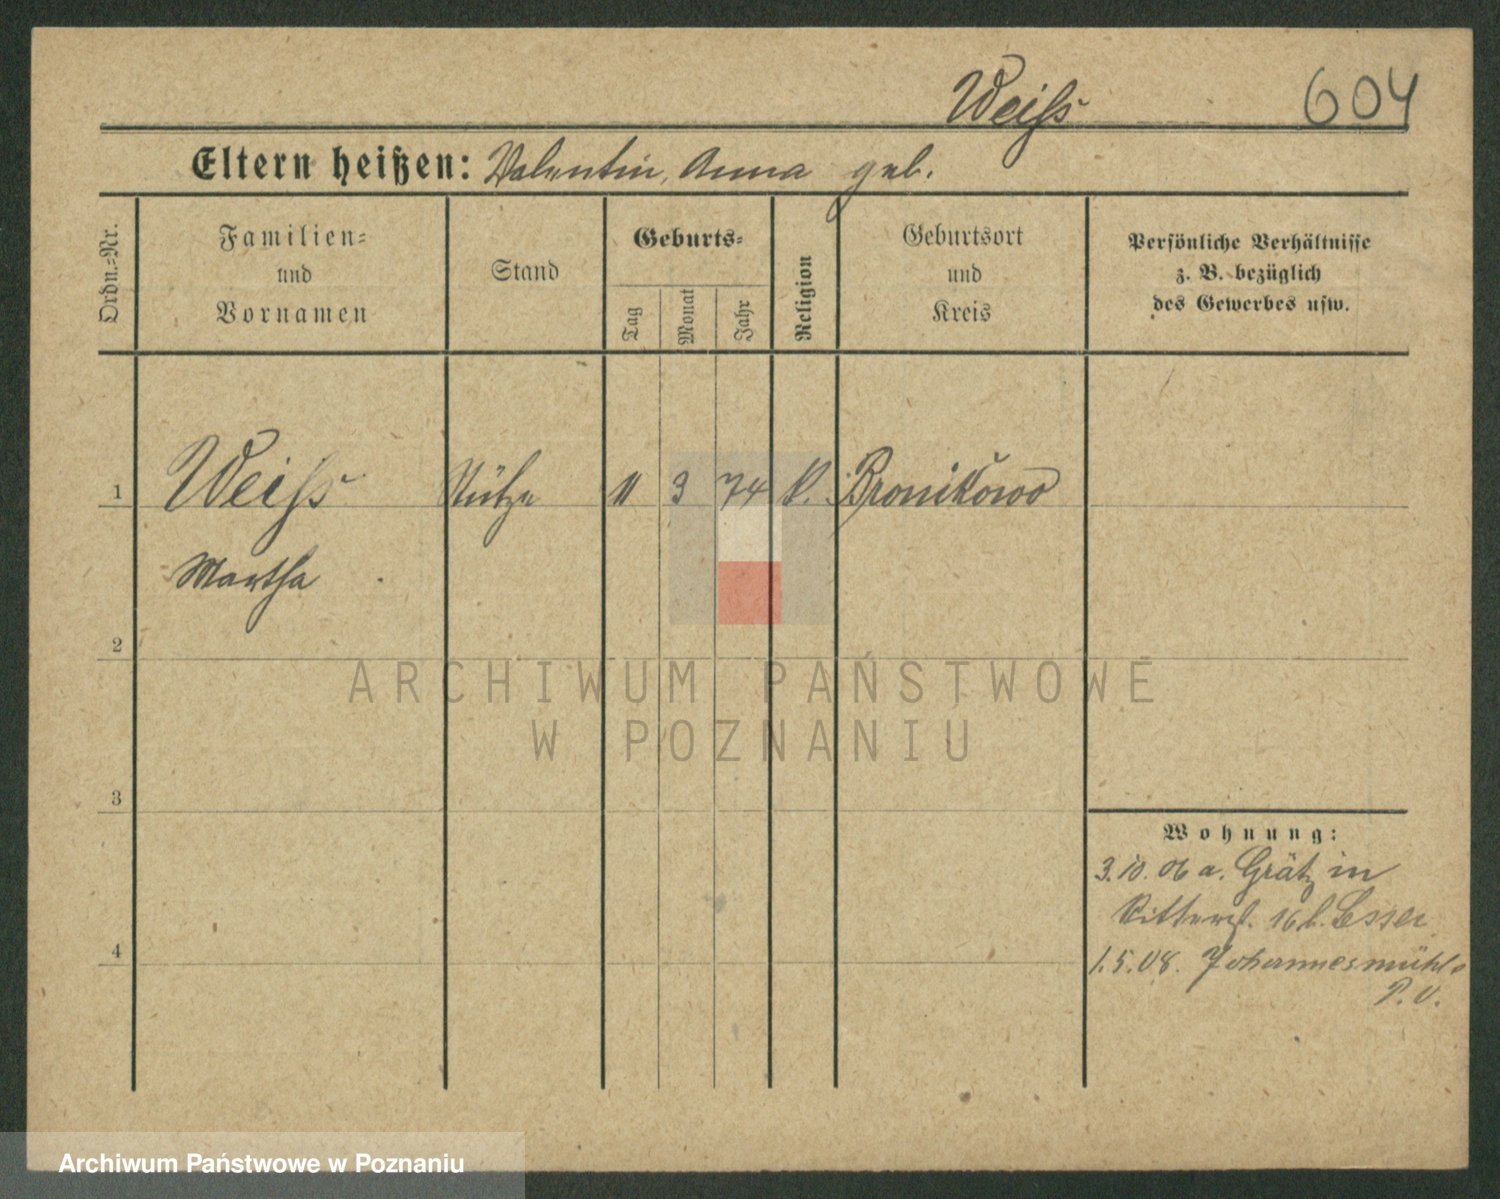 Weiß 604
Eltern heißen: Valentin, Anna geb.
Ordn.-Nr.
Familien-
und
Vornamen
Stand
Geburts-
Tag
Monat
Jahr
Religion
Geburtsort
und
Kreis
Persönliche Verhältnisse
z. B. bezüglich
des Gewerbes usw.
1 Weiß Stütze 11 3 74 k. Bronikowo
Martha
2
3
4
Wohnung:
3.10.06 a. Grätz in
Ritterst. 16 b. Esser
1.5.08. Johannesmühle
P. O.
ARCHIWUM PAŃSTWOWE
W POZNANIU
Archiwum Państwowe w Poznaniu